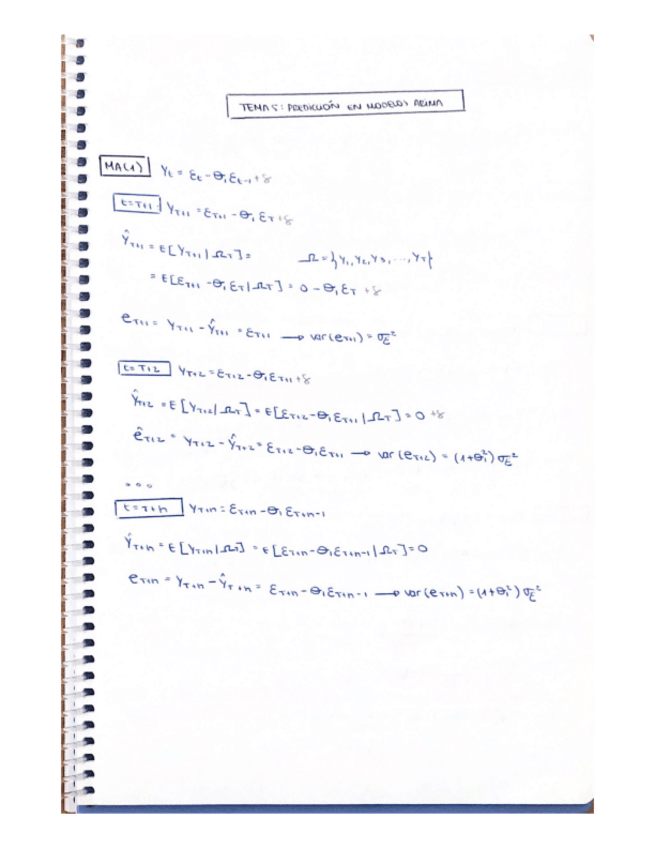 TEMA 5: PREDICCIÓN EN MODELOS ARIMA
MA(1) Yt = εt - θ1 εt-1 + δ
t=T+1 YT+1 = εT+1 - θ1 εT + δ
ŶT+1 = E[YT+1 | ΩT] = Ω = {Y1, Y2, Y3, ..., YT}
= E[εT+1 - θ1 εT | ΩT] = 0 - θ1 εT + δ
eT+1 = YT+1 - ŶT+1 = εT+1 → var(eT+1) = σε²
t=T+2 YT+2 = εT+2 - θ1 εT+1 + δ
ŶT+2 = E[YT+2 | ΩT] = E[εT+2 - θ1 εT+1 | ΩT] = 0 + δ
êT+2 = YT+2 - ŶT+2 = εT+2 - θ1 εT+1 → var(eT+2) = (1+θ1²) σε²
...
t=T+n YT+n = εT+n - θ1 εT+n-1
ŶT+n = E[YT+n | ΩT] = E[εT+n - θ1 εT+n-1 | ΩT] = 0
eT+n = YT+n - ŶT+n = εT+n - θ1 εT+n-1 → var(eT+n) = (1+θ1²) σε²